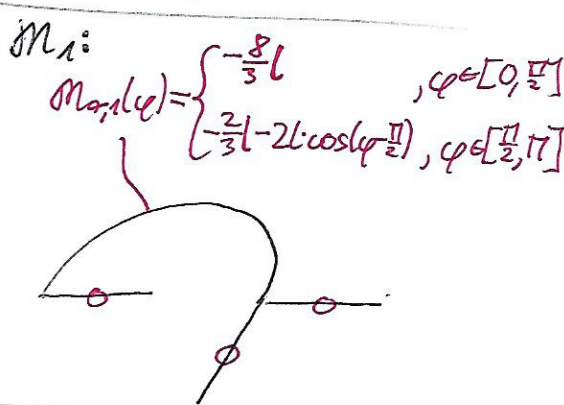 M₁:
M_{α,1}(φ) = { -8/3 l , φ∈[0, π/2]
-2/3 l - 2l·cos(φ-π/2) , φ∈[π/2, π]
0 0 0